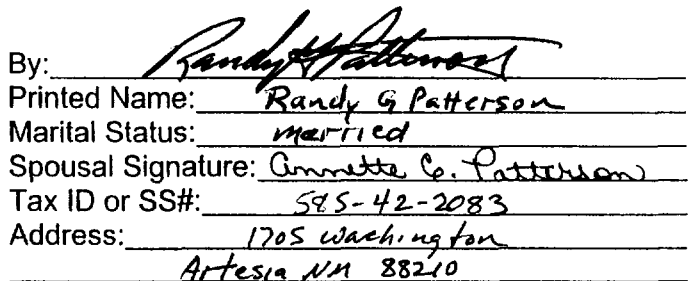 By: Randy G Patterson
Printed Name: Randy G Patterson
Marital Status: married
Spousal Signature: Annette C. Patterson
Tax ID or SS#: 585-42-2083
Address: 1705 Washington
Artesia NM 88210